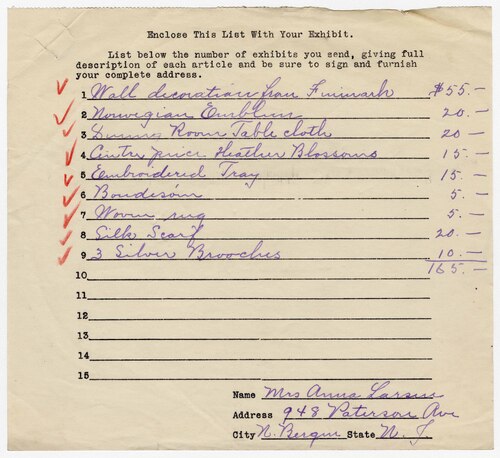 Enclose This List With Your Exhibit.
List below the number of exhibits you send, giving full
description of each article and be sure to sign and furnish
your complete address.
1 Wall decoration from Finmark $55.—
2 Norwegian Emblem 20.—
3 Dining Room Table cloth 20—
4 Centre piece Heather Blossoms 15.—
5 Embroidered Tray 15—
6 5.—
7 Woven rug 5.—
8 Silk Scarf 20.—
9 3 Silver Brooches 10.—
10 165.—
11
12
13
14
15
Name Mrs Anna Larsen
Address 948 Paterson Ave
City N. Bergen State N. J